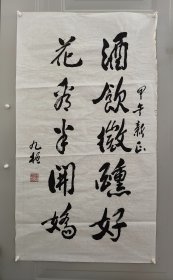 酒飲微醺好
花看半開嬌
甲午新正
九